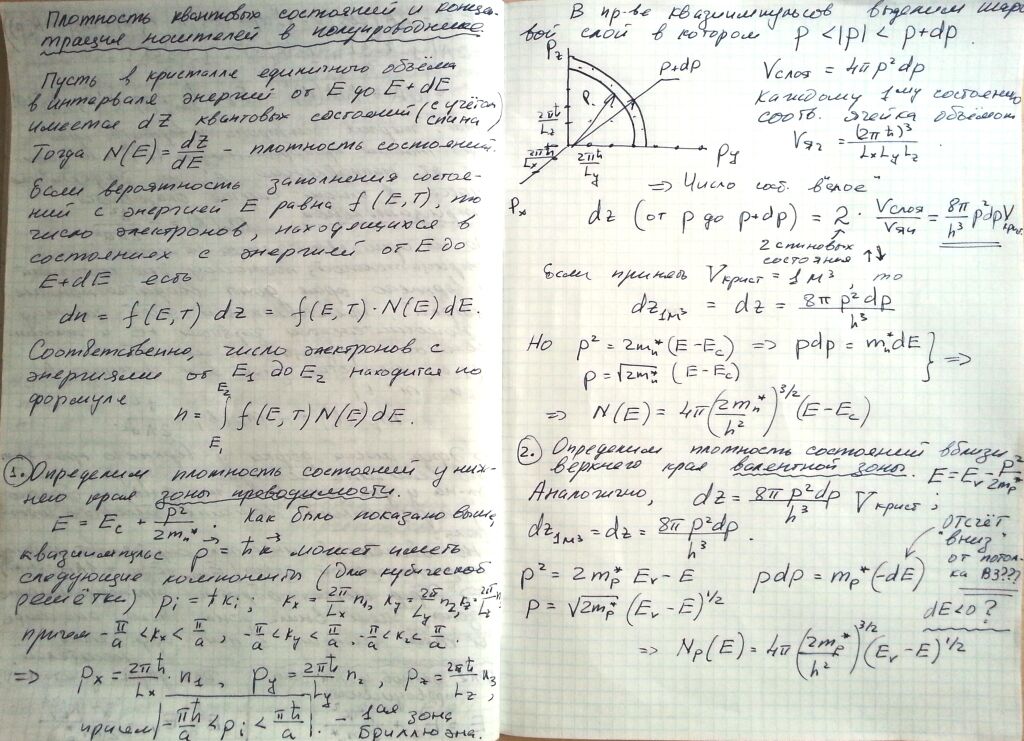 Плотность квантовых состояний и концен-
трация носителей в полупроводнике.
Пусть в кристалле единичного объёма
в интервале энергий от E до E+dE
имеется dZ квантовых состояний (с учётом спина)
Тогда N(E) = dz/dE - плотность состояний.
Если вероятность заполнения состоя-
ний с энергией E равна f(E,T), то
число электронов, находящихся в
состояниях с энергией от E до
E+dE есть
dn = f(E,T) dz = f(E,T)·N(E)dE.
Соответственно, число электронов с
энергиями от E₁ до E₂ находится по
формуле
n = ∫_{E₁}^{E₂} f(E,T)N(E)dE.
1. Определим плотность состояний у ниж-
него края зоны проводимости.
E = E_c + p²/2m_n*. Как было показано выше,
квазиимпульс p⃗ = ħk⃗ может иметь
следующие компоненты (для кубической
решётки) p_i = ħk_i; k_x = 2π/L_x n₁, k_y = 2π/L_y n₂, k_z = 2π/L_z n₃
причём -π/a < k_x < π/a, -π/a < k_y < π/a, -π/a < k_z < π/a.
⇒ p_x = 2πħ/L_x · n₁, p_y = 2πħ/L_y n₂, p_z = 2πħ/L_z n₃,
причем -πħ/a < p_i < πħ/a. - 1ая зона
Бриллюэна.
В пр-ве квазиимпульсов выделим шаро-
вой слой в котором p < |p| < p+dp
P_z
p+dp
p
2πħ/L_z
2πħ/L_x
2πħ/L_y
P_y
P_x
V_слоя = 4πp²dp
Каждому 1му состоянию
соотв. ячейка объёмом
V_яч = (2πħ)³/L_xL_yL_z
⇒ Число сост. в "слое"
dz (от p до p+dp) = 2 · V_слоя/V_яч = 8π/h³ p²dpV_крист.
2 спиновых
состояния ↑↓
Если принять V_крист = 1м³, то
dz_1м³ = dz = 8πp²dp/h³
Но p² = 2m_n*(E-E_c) ⇒ pdp = m_n*dE } ⇒
p = √2m_n* (E-E_c)
⇒ N(E) = 4π(2m_n*/h²)^3/2 (E-E_c)
2. Определим плотность состояний вблизи
верхнего края валентной зоны. E = E_v - p²/2m_p*
Аналогично, dz = 8πp²dp/h³ V_крист;
dz_1м³ = dz = 8πp²dp/h³.
отсчёт
"вниз"
от потол-
ка ВЗ???
p² = 2m_p* E_v - E pdp = m_p*(-dE)
p = √2m_p* (E_v-E)^1/2
dE<0?
⇒ N_p(E) = 4π(2m_p*/h²)^3/2 (E_v-E)^1/2